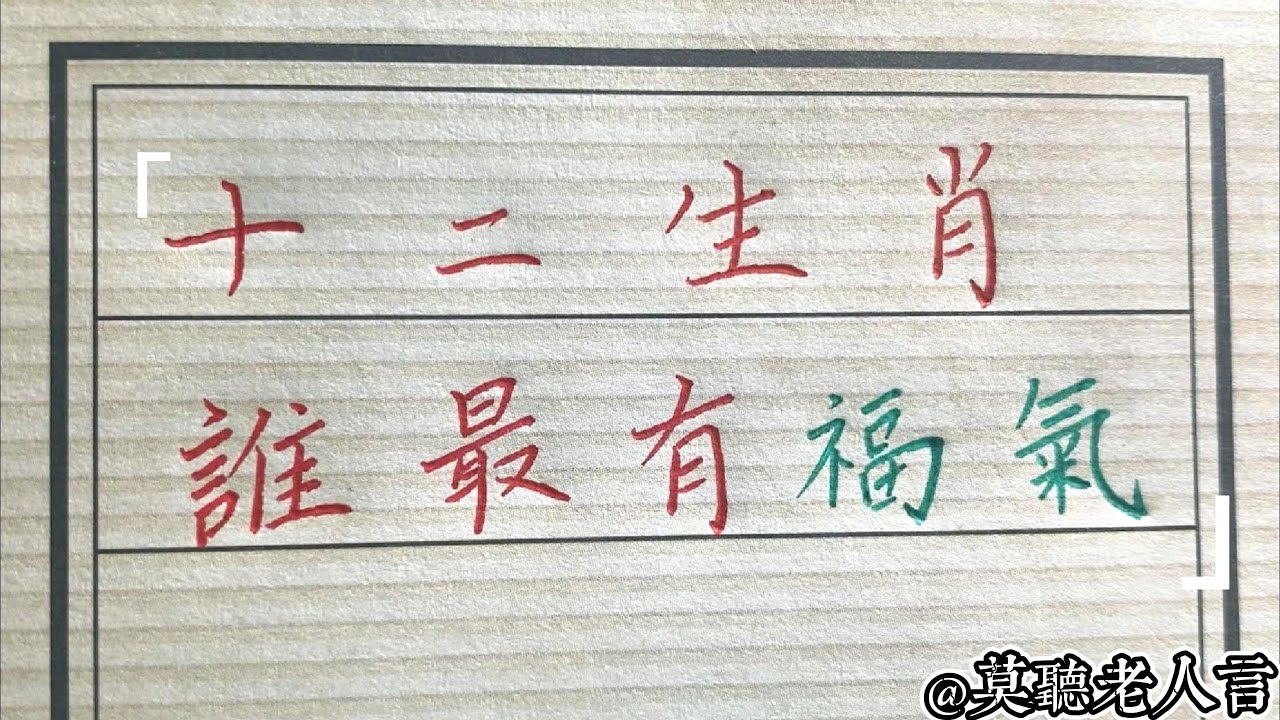 「十二生肖
誰最有福氣」
@莫聽老人言